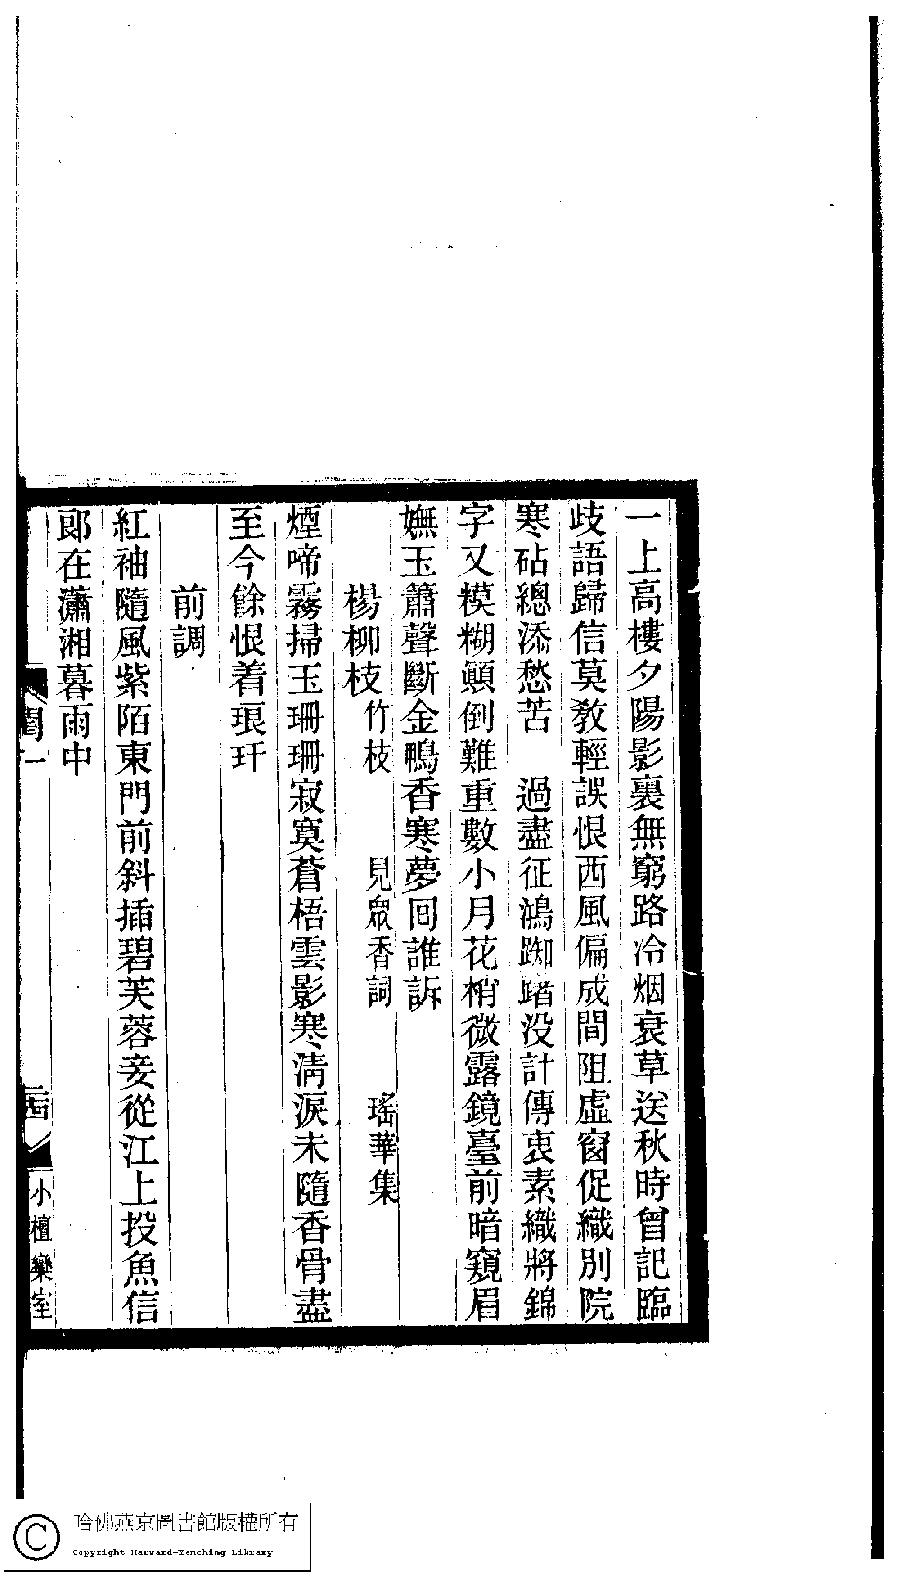 一上高樓夕陽影裏無窮路冷烟衰草送秋時曾記臨
歧語歸信莫敎輕誤恨西風偏成間阻虛窗促織別院
寒砧總添愁苦　過盡征鴻踟躇没計傳衷素織將錦
字又模糊顚倒難重數小月花梢微露鏡臺前暗窺眉
嫵玉簫聲斷金鴨香寒夢回誰訴
楊柳枝竹枝　見眾香詞　瑤華集
煙啼霧掃玉珊珊寂寞蒼梧雲影寒淸淚未隨香骨盡
至今餘恨着琅玕
前調
紅袖隨風紫陌東門前斜插碧芙蓉妾從江上投魚信
郞在瀟湘暮雨中
小檀欒室
哈佛燕京圖書館版權所有
Copyright Harvard-Yenching Library